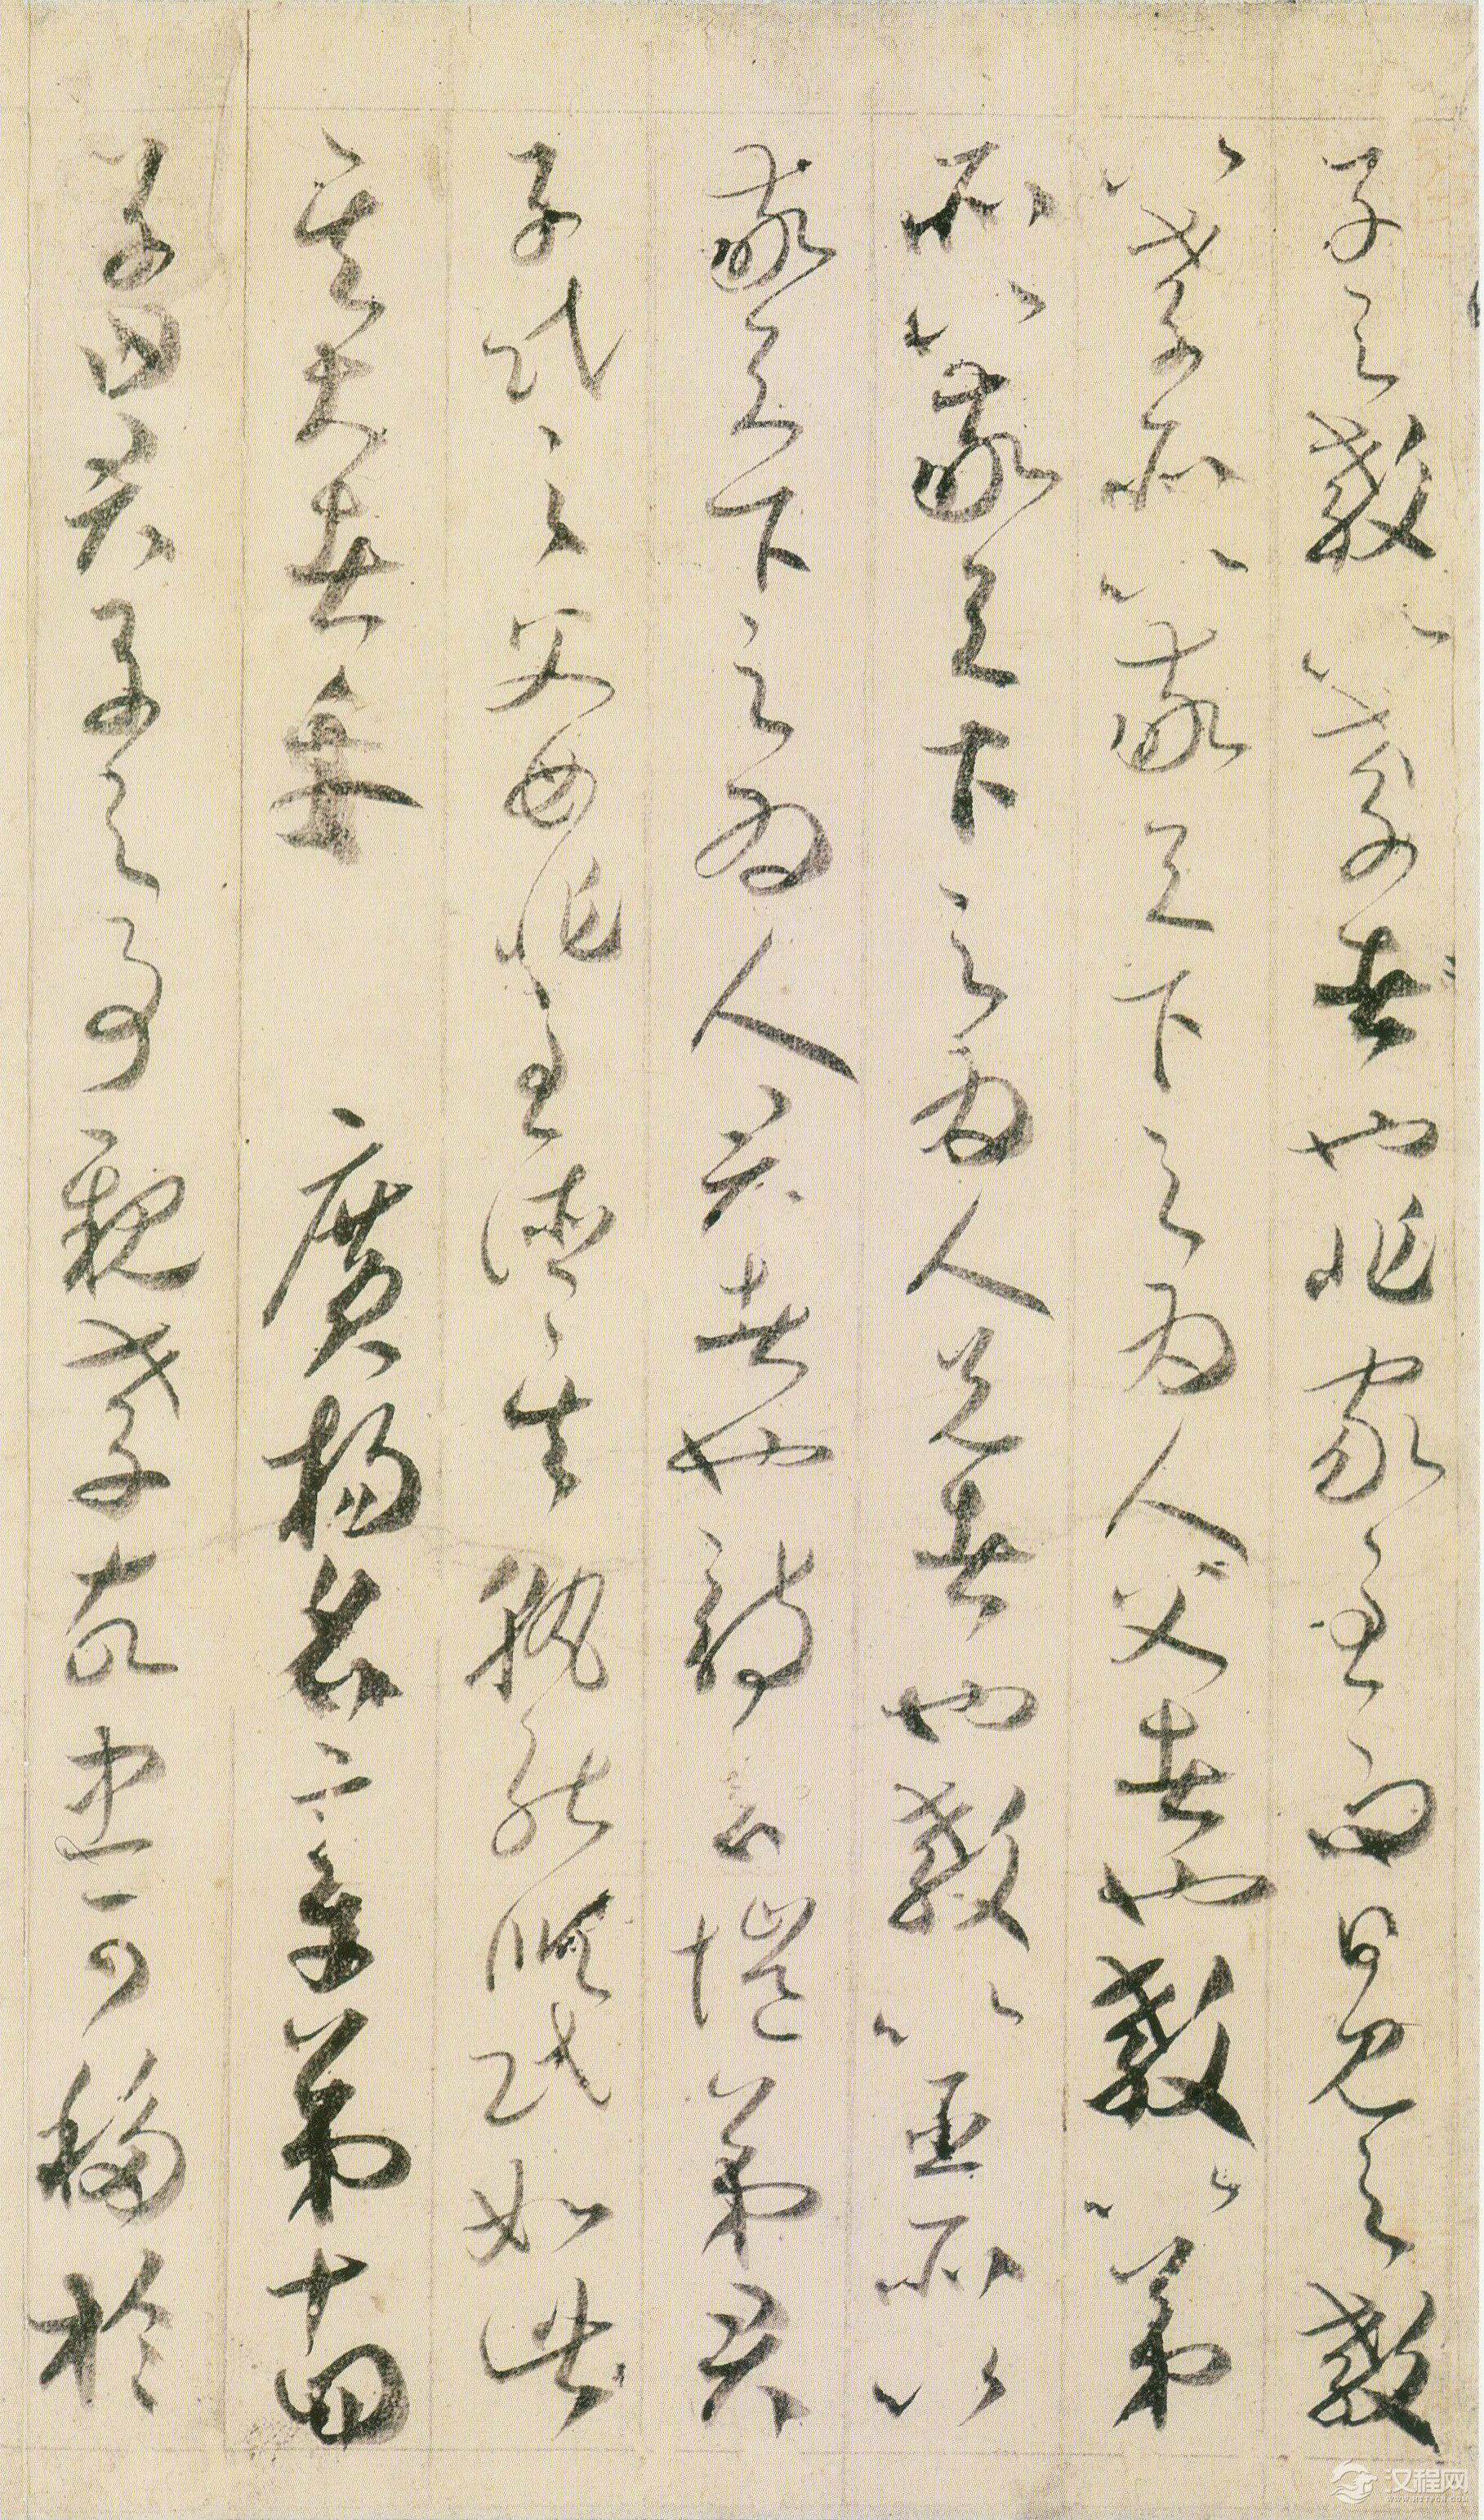 子之教以孝者也非家至而日見之教
以孝所以敬天下之為人父者也教以弟
所以敬天下之為人兄者也教以臣所以
敬天下之為人君者也詩云愷弟君
子民之父母非至德其孰能順民如此
其大者乎　廣揚名章第十四
子曰君子之事親孝故忠可移於
汉程网